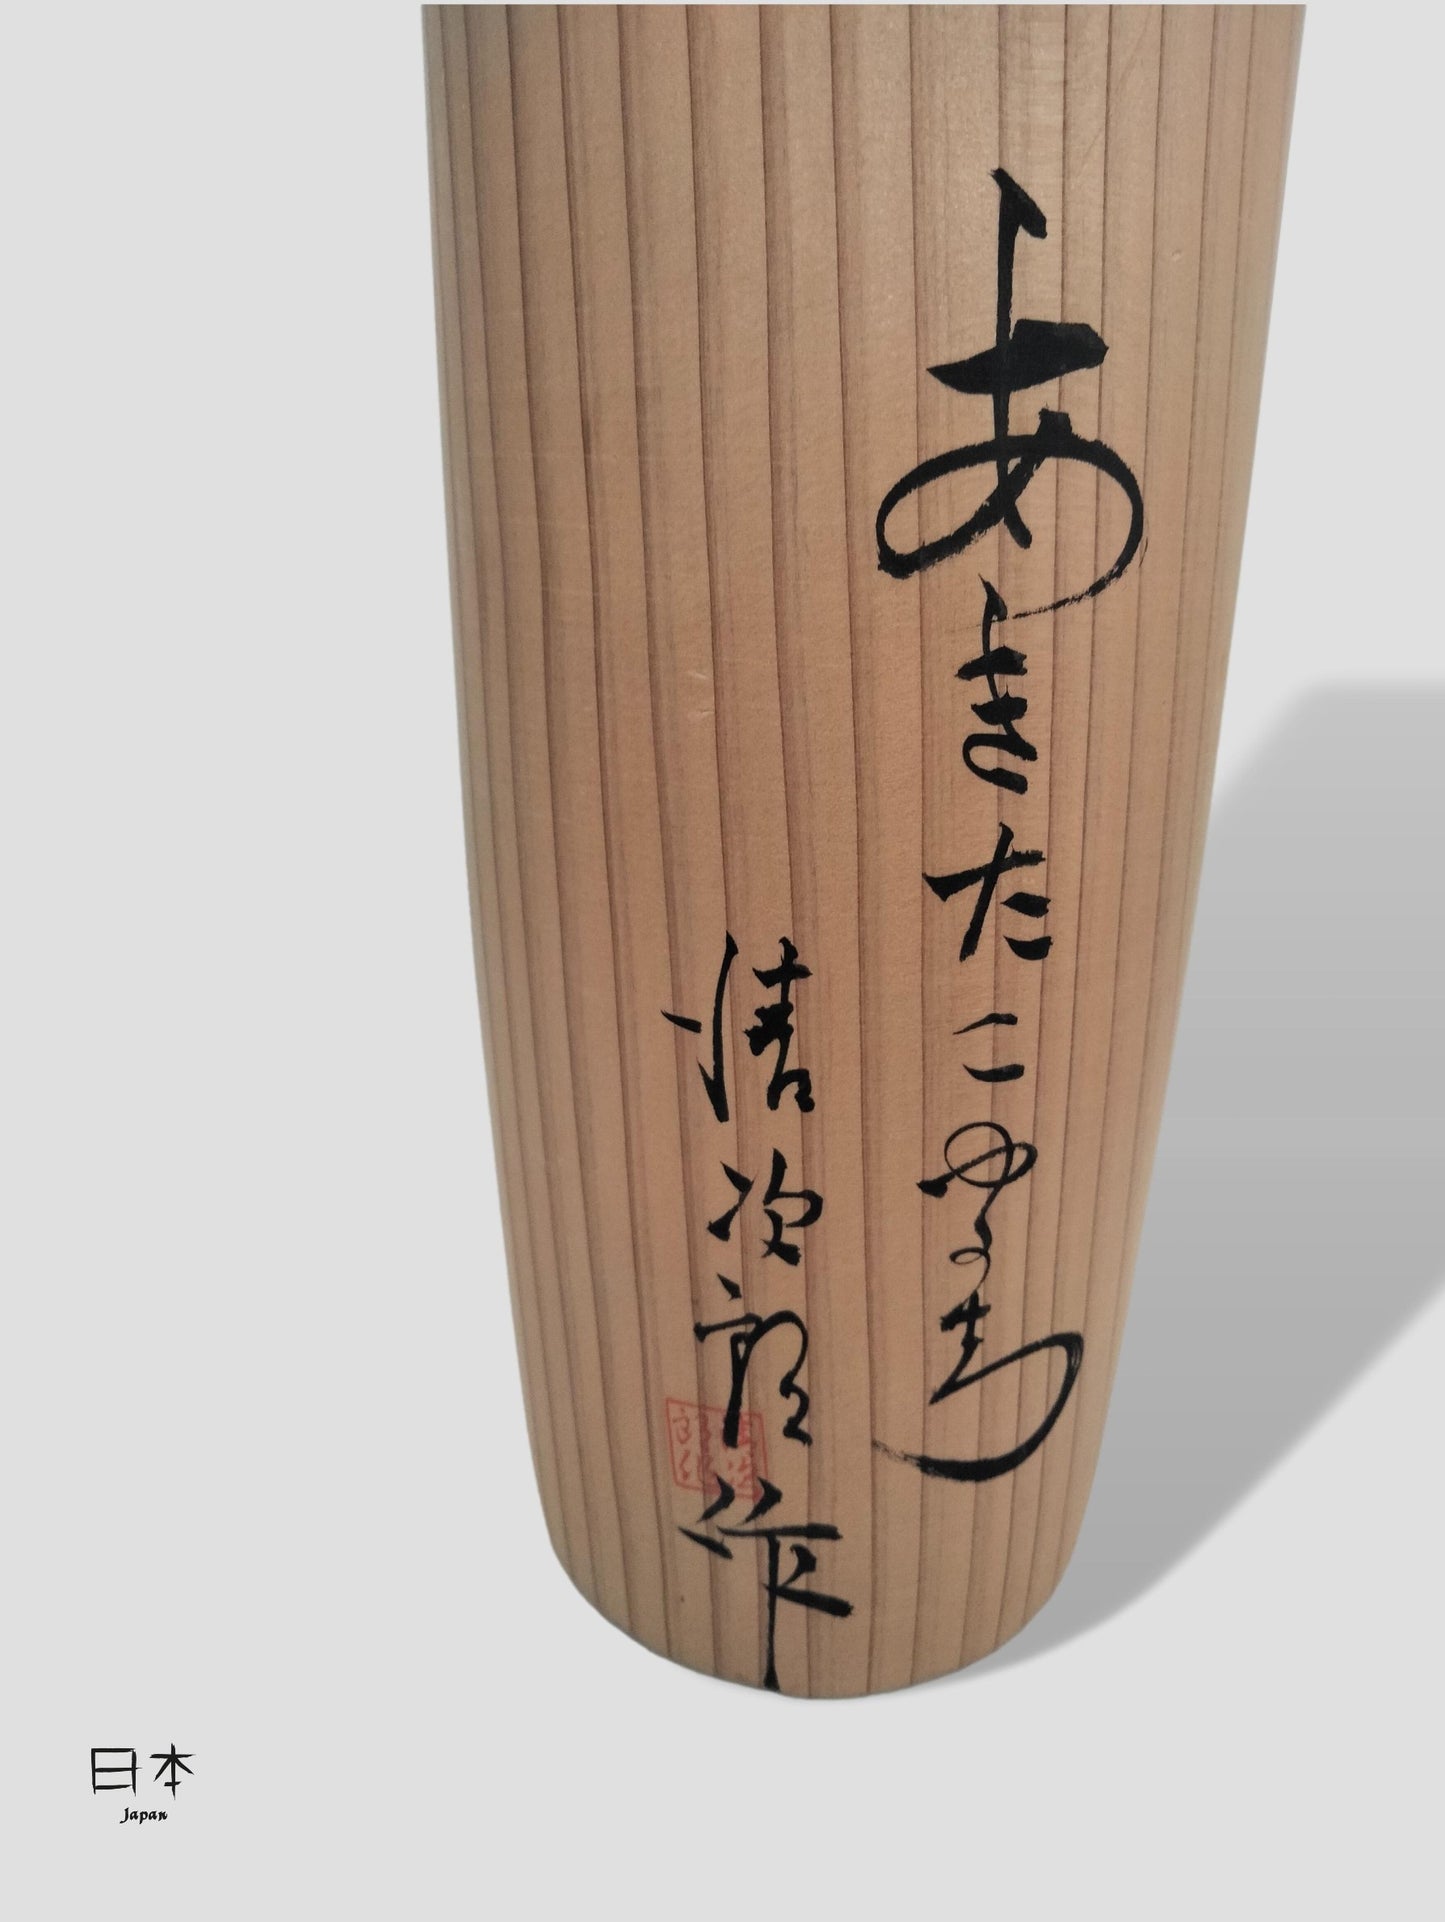 あきたこまち
清次郎作
日本
Japan